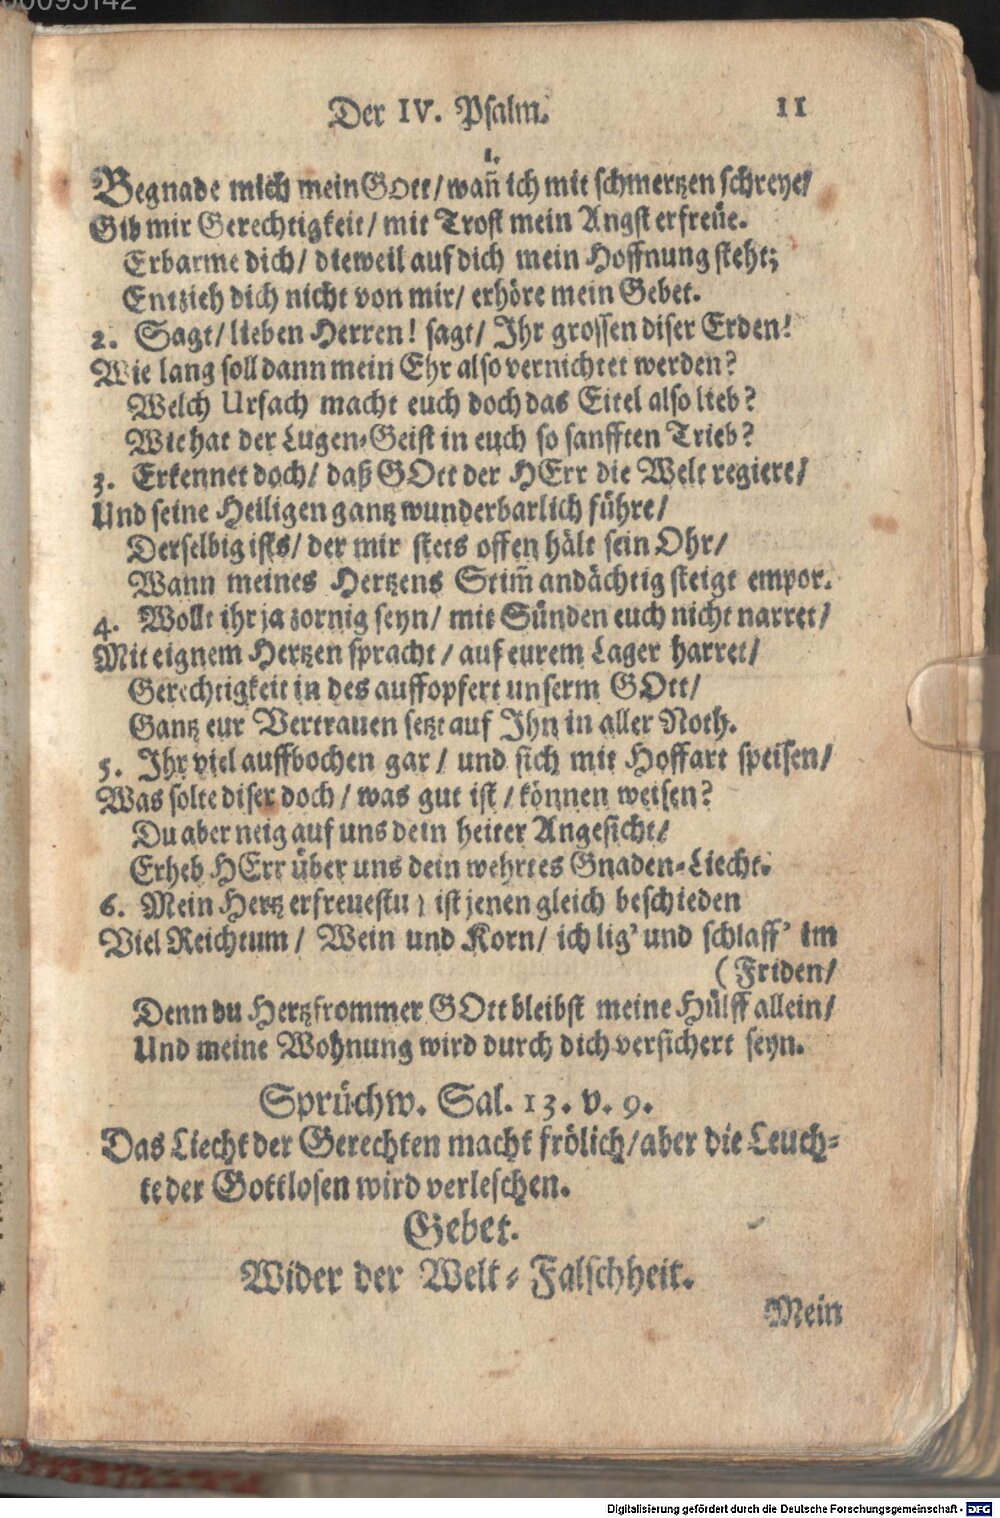 Der IV. Psalm. 11
1.
Begnade mich mein GOtt/ wañ ich mit schmertzen schreye/
Gib mir Gerechtigkeit/ mit Trost mein Angst erfreüe.
Erbarme dich/ dieweil auf dich mein Hoffnung steht;
Entzieh dich nicht von mir/ erhöre mein Gebet.
2. Sagt/ lieben Herren! sagt/ Ihr grossen diser Erden!
Wie lang soll dann mein Ehr also vernichtet werden?
Welch Ursach macht euch doch das Eitel also lieb?
Wie hat der Lugen-Geist in euch so sanfften Trieb?
3. Erkennet doch/ daß GOtt der HErr die Welt regiere/
Und seine Heiligen gantz wunderbarlich führe/
Derselbig ists/ der mir stets offen hält sein Ohr/
Wann meines Hertzens Stim̃ andächtig steigt empor.
4. Wollt ihr ja zornig seyn/ mit Sünden euch nicht narret/
Mit eignem Hertzen spracht/ auf eurem Lager harret/
Gerechtigkeit in des auffopfert unserm GOtt/
Gantz eur Vertrauen setzt auf Ihn in aller Noth.
5. Ihr viel auffbochen gar/ und sich mit Hoffart speisen/
Was solte diser doch/ was gut ist/ können weisen?
Du aber neig auf uns dein heiter Angesicht/
Erheb HErr über uns dein wehrtes Gnaden-Liecht.
6. Mein Hertz erfreuestu) ist jenen gleich beschieden
Viel Reichtum/ Wein und Korn/ ich lig' und schlaff' im
(Friden/
Denn du Hertzfrommer GOtt bleibst meine Hülff allein/
Und meine Wohnung wird durch dich versichert seyn.
Sprüchw. Sal. 13. v. 9.
Das Liecht der Gerechten macht frölich/ aber die Leuch-
te der Gottlosen wird verleschen.
Gebet.
Wider der Welt-Falschheit.
Mein
Digitalisierung gefördert durch die Deutsche Forschungsgemeinschaft - DFG